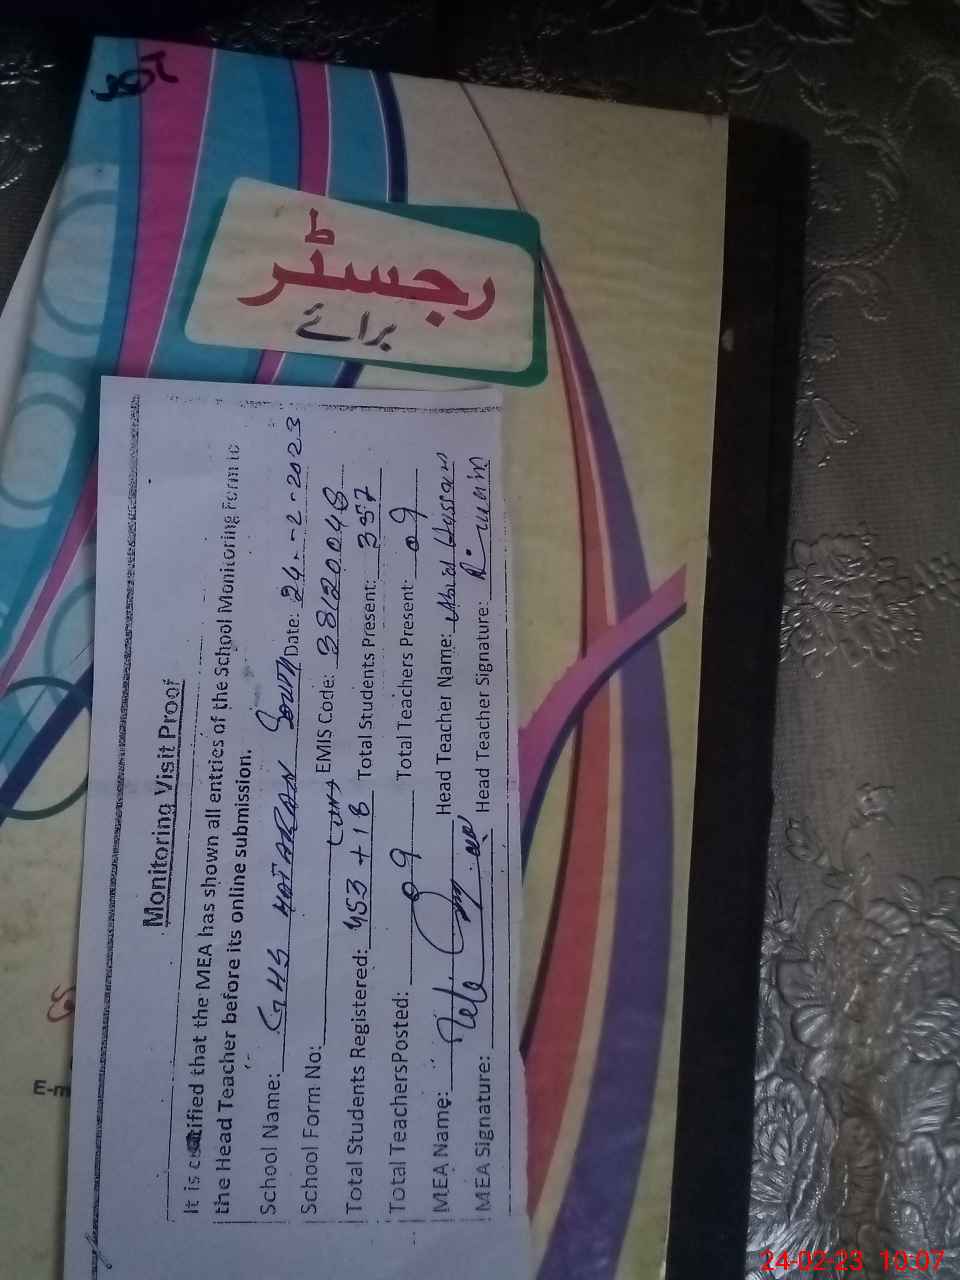 رجسٹر
برائے
Monitoring Visit Proof
It is certified that the MEA has shown all entries of the School Monitoring Form to
the Head Teacher before its online submission.
School Name: GHS HATARAN South Date: 24-2-2023
School Form No: EMIS Code: 38120048
Total Students Registered: 453 + 18 Total Students Present: 357
Total TeachersPosted: 09 Total Teachers Present: 09
MEA Name: Head Teacher Name: Abid Hassan
MEA Signature: Head Teacher Signature:
E-m
24-02-23 10:07